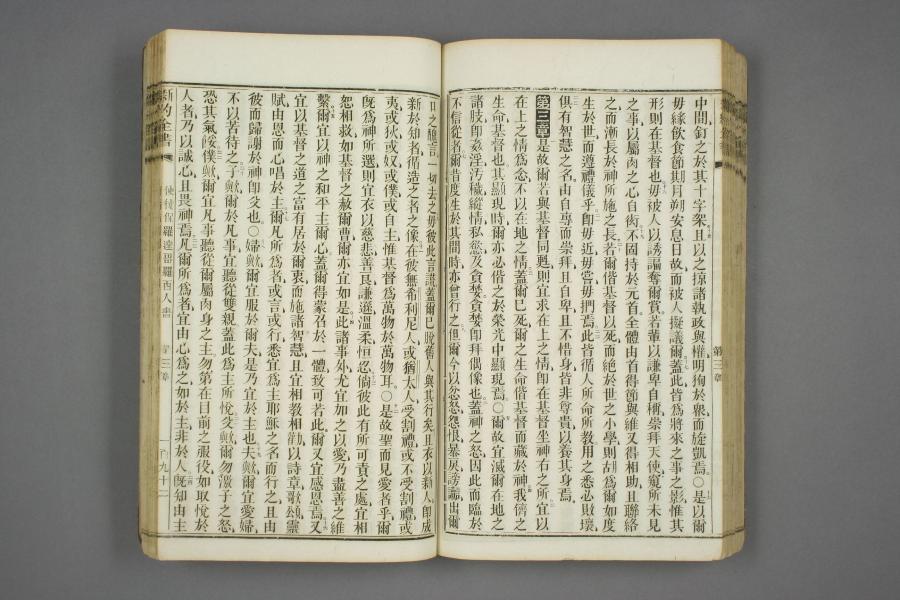 中間釘之於其十字架且以之掠諸執政與權明狥於眾而旋凱焉○是以爾
毋緣飲食節期月朔安息日故而被人擬議爾蓋此皆爲將來之事之影惟其
形則在基督也毋被人以誘謳奪爾賞若輩以謙卑自稱崇拜天使窺所未見
之事以屬肉之心自衒不固持於元首全體由首得節與維又得相助且聯絡
之而漸長於神所施之長若爾偕基督以死而絕於世之小學則胡爲爾如度
生於世而遵禮儀乎卽毋近毋嘗毋捫焉此皆循人所命所教用之悉必敗壞
俱有智慧之名由自專而崇拜且自卑且不惜身皆非尊貴以養其身焉
第三章是故爾若與基督同甦則宜求在上之情卽在基督坐神右之所宜以
在上之情爲念不以在地之情蓋爾已死爾之生命偕基督而藏於神我儕之
生命基督也其顯現時爾亦必偕之於榮光中顯現焉○爾故宜滅在地之
諸肢卽姦淫汚穢縱情私慾及貪婪貪婪卽拜偶像也蓋神之怒因此而臨於
不信從者爾昔度生於其間時亦曾行之但爾今以忿怒怨恨暴戾謗讟出爾
口之醜言一切去之毋彼此言謊蓋爾已脫舊人與其行矣且衣以新人卽成
新於知者循造之者之像在彼無希利尼人或猶太人受割禮或不受割禮或
夷或狄或奴或僕或自主惟基督爲萬物於萬物耳○是故聖而見愛者乎爾
旣爲神所選則宜衣以慈悲善良謙遜溫柔恒忍倘彼此有所可責之處宜相
恕相救如基督之赦爾曹爾亦宜如是此諸事外尤宜加之以愛乃盡善之維
繫爾宜以神之和平主爾心蓋爾得蒙召於一體致可若此爾又宜感恩焉又
宜以基督之道之富有居於爾衷而施諸智慧且宜相教相勸以詩章歌頌靈
賦由恩而心唱於主爾凡所爲者或言或行悉宜爲主耶穌之名而行之且由
彼而歸謝於神卽父也○婦歟爾宜服於爾夫是乃宜於主也夫歟爾宜愛婦
不以苦待之子歟爾於凡事宜聽從雙親蓋此爲主所悅父歟爾勿激子之怒
恐其氣餒僕歟爾宜凡事聽從爾屬肉身之主勿第在目前之服役如取悅於
人者乃以誠心且畏神焉爾所爲者宜由心爲之如於主非於人旣知由主
新約全書
使徒保羅達哥羅西人書
第三章
一百九十二
第三章